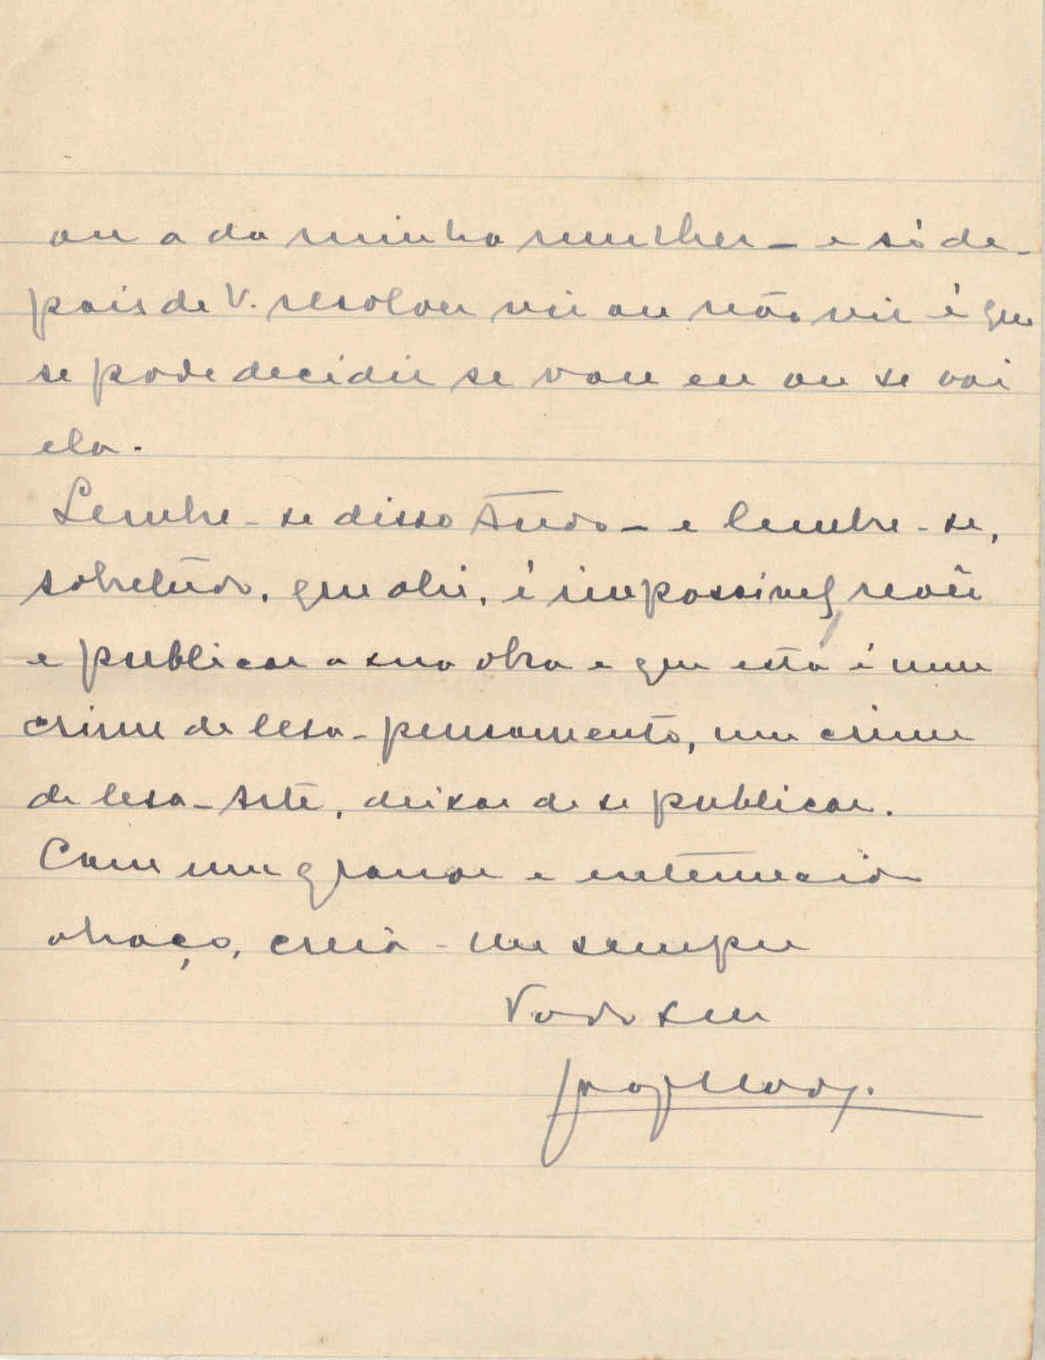 ou a da minha mulher - e só de-
pois de V. resolver vir ou não vir é que
se pode decidir se vou eu ou se vai
ela.
Lembre-se disso tudo - e lembre-se,
sobretudo, que ali, é impossivel rever
e publicar a sua obra e que esta é um
crime de lesa-pensamento, um crime
de lesa-Arte, deixar de se publicar.
Com um grande e enternecido
abraço, creia-me sempre
Todo seu